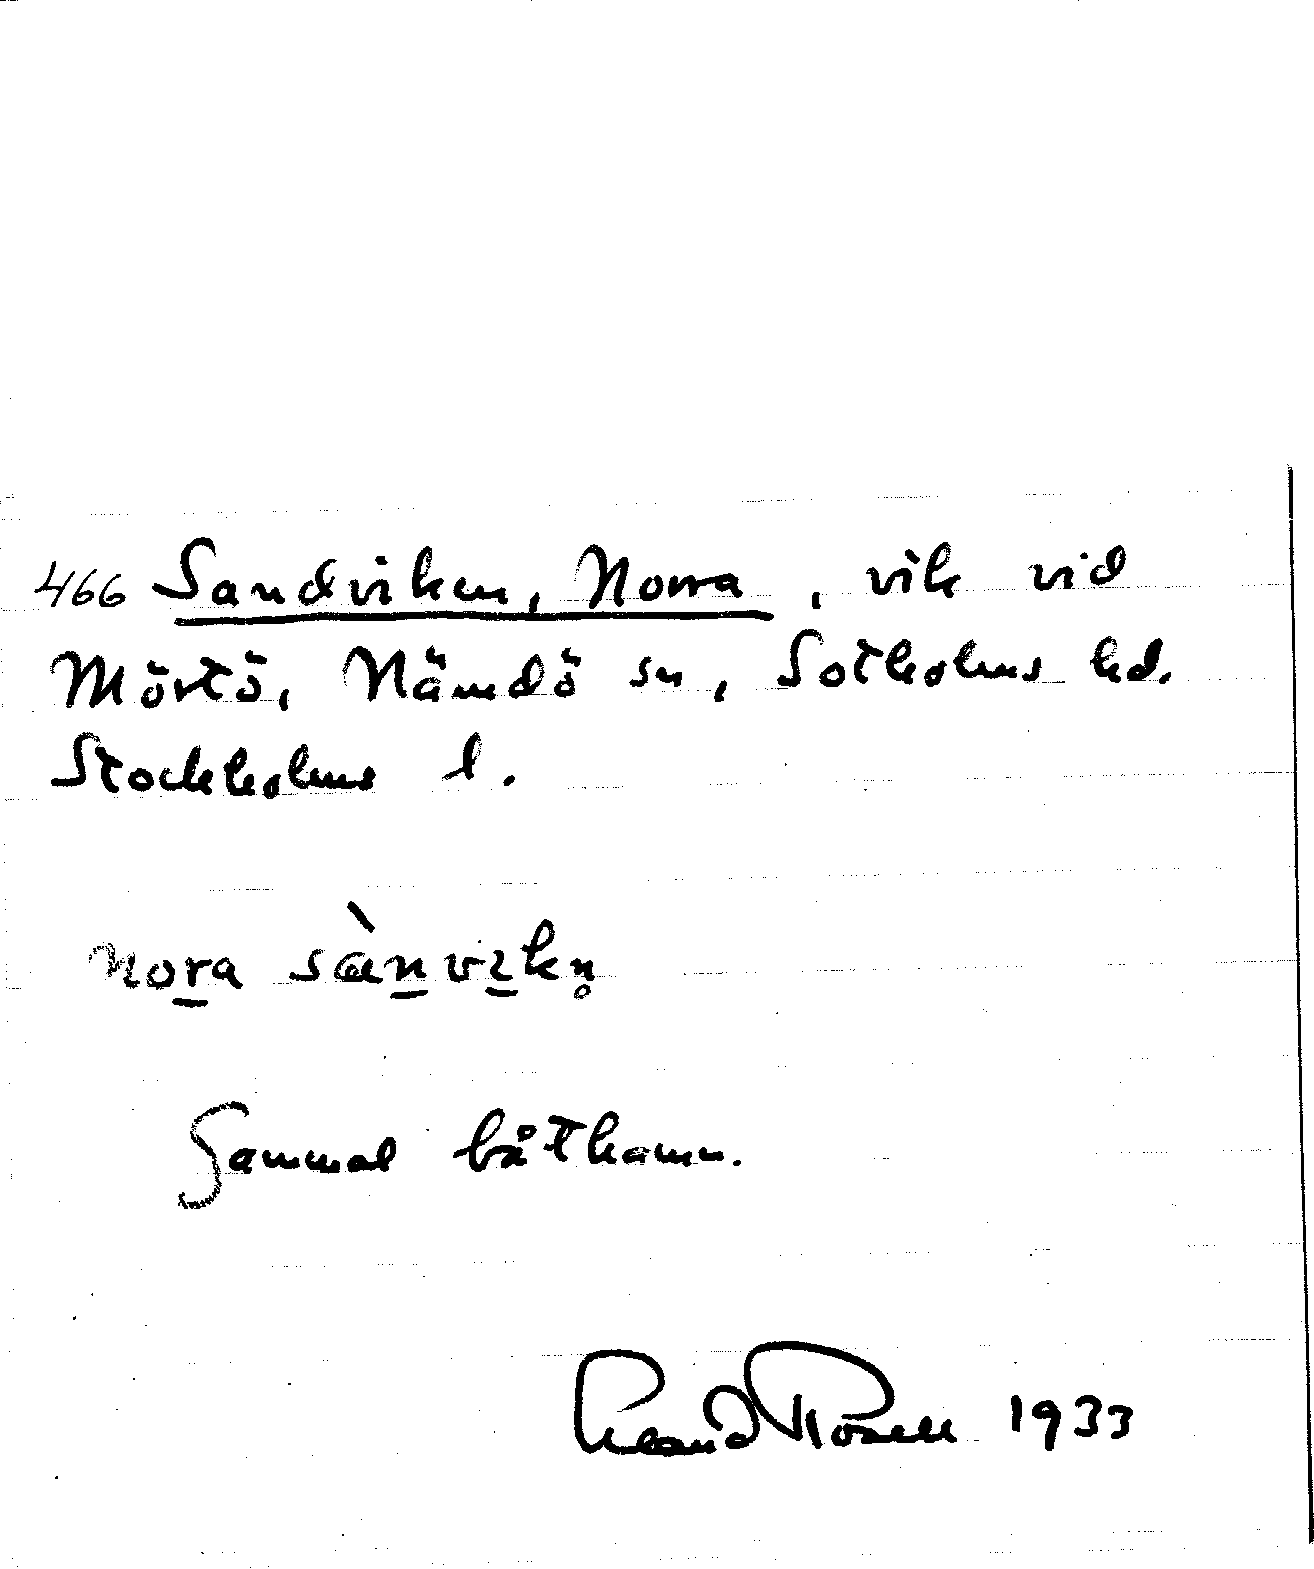 466 Sandviken, Norra, vik vid
Mörtö, Nämdö sn, Sotholms hd.
Stockholms l.
nora sànvıkn̥
Gammal båthamn.
1933